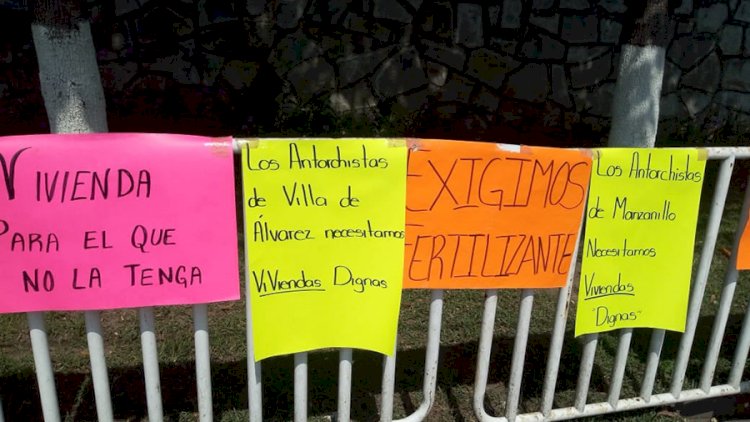 VIVIENDA
PARA EL QUE
NO LA TENGA
Los Antorchistas
de Villa de
Álvarez necesitamos
ViViendas Dignas
EXIGIMOS
FERTILIZANTE
Los Antorchistas
de Manzanillo
Necesitamos
Viviendas
"Dignas"